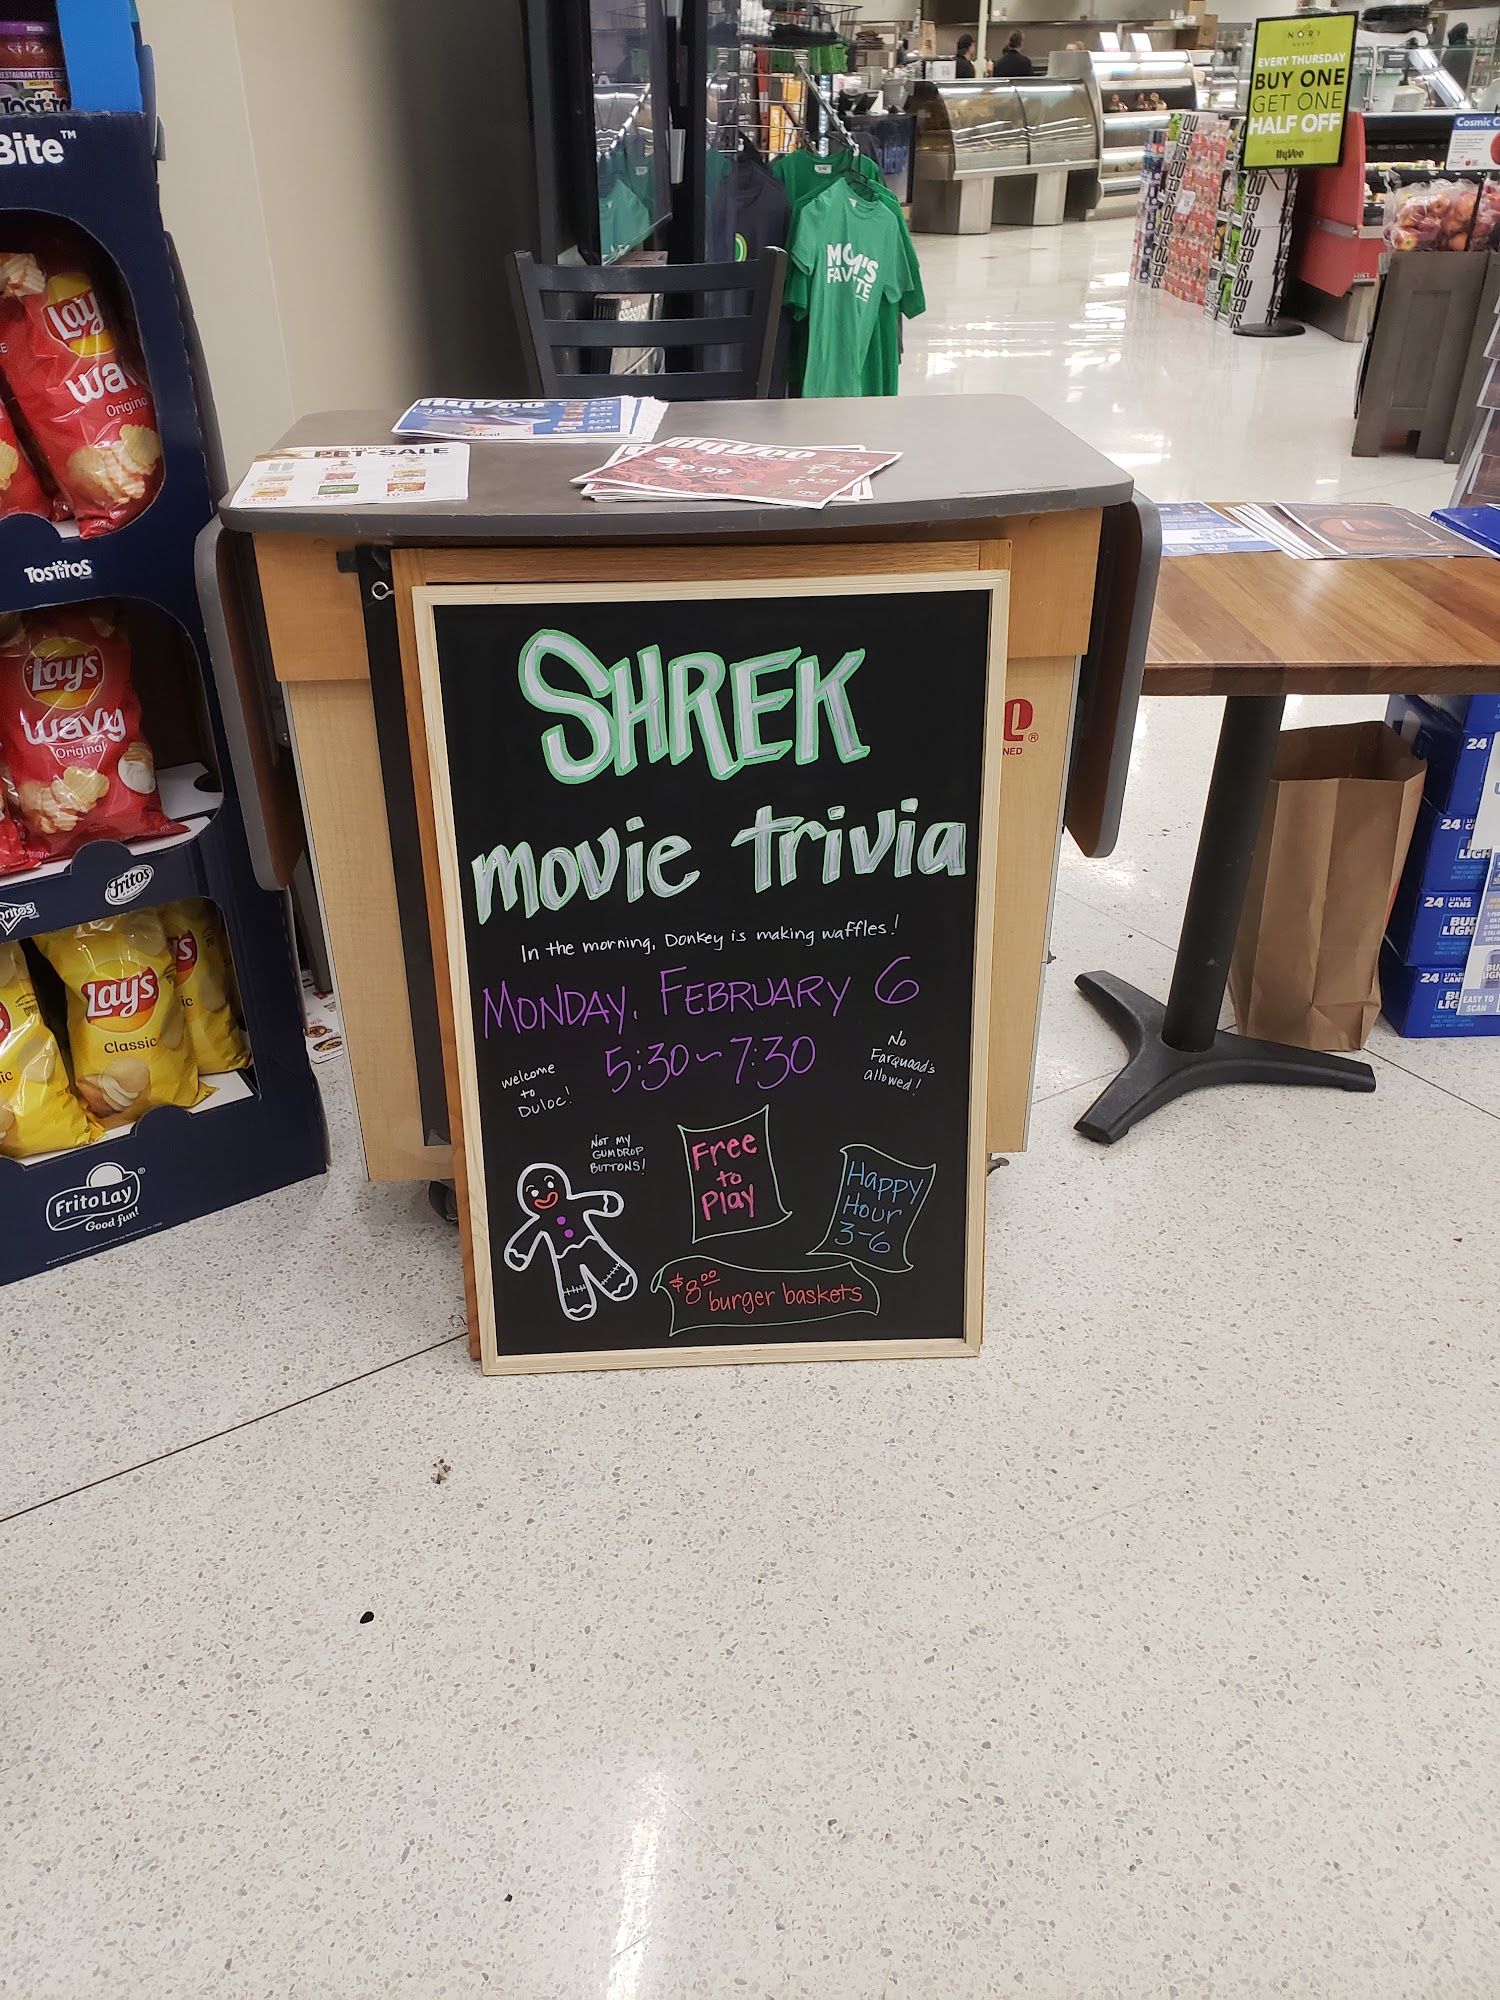 NORI
EVERY THURSDAY
BUY ONE
GET ONE
HALF OFF
HyVee
Cosmic
RESTAURANT STYLE
TOSTITOS
Bite™
MOM'S
Lay's
wavy
Original
HyVee
PET SALE
HyVee
TOSTITOS
SHREK
movie trivia
In the morning, Donkey is making waffles!
MONDAY, FEBRUARY 6
5:30 - 7:30
welcome
to
DULOC!
No
Farquaad's
allowed!
NOT MY
GUMDROP
BUTTONS!
Free
to
Play
Happy
Hour
3-6
$8.00 burger baskets
Lay's
wavy
Original
Fritos
Lay's
Classic
FritoLay®
Good fun!
24
24
24 12 FL OZ. CANS
BUD LIGH
24
EASY TO
SCAN